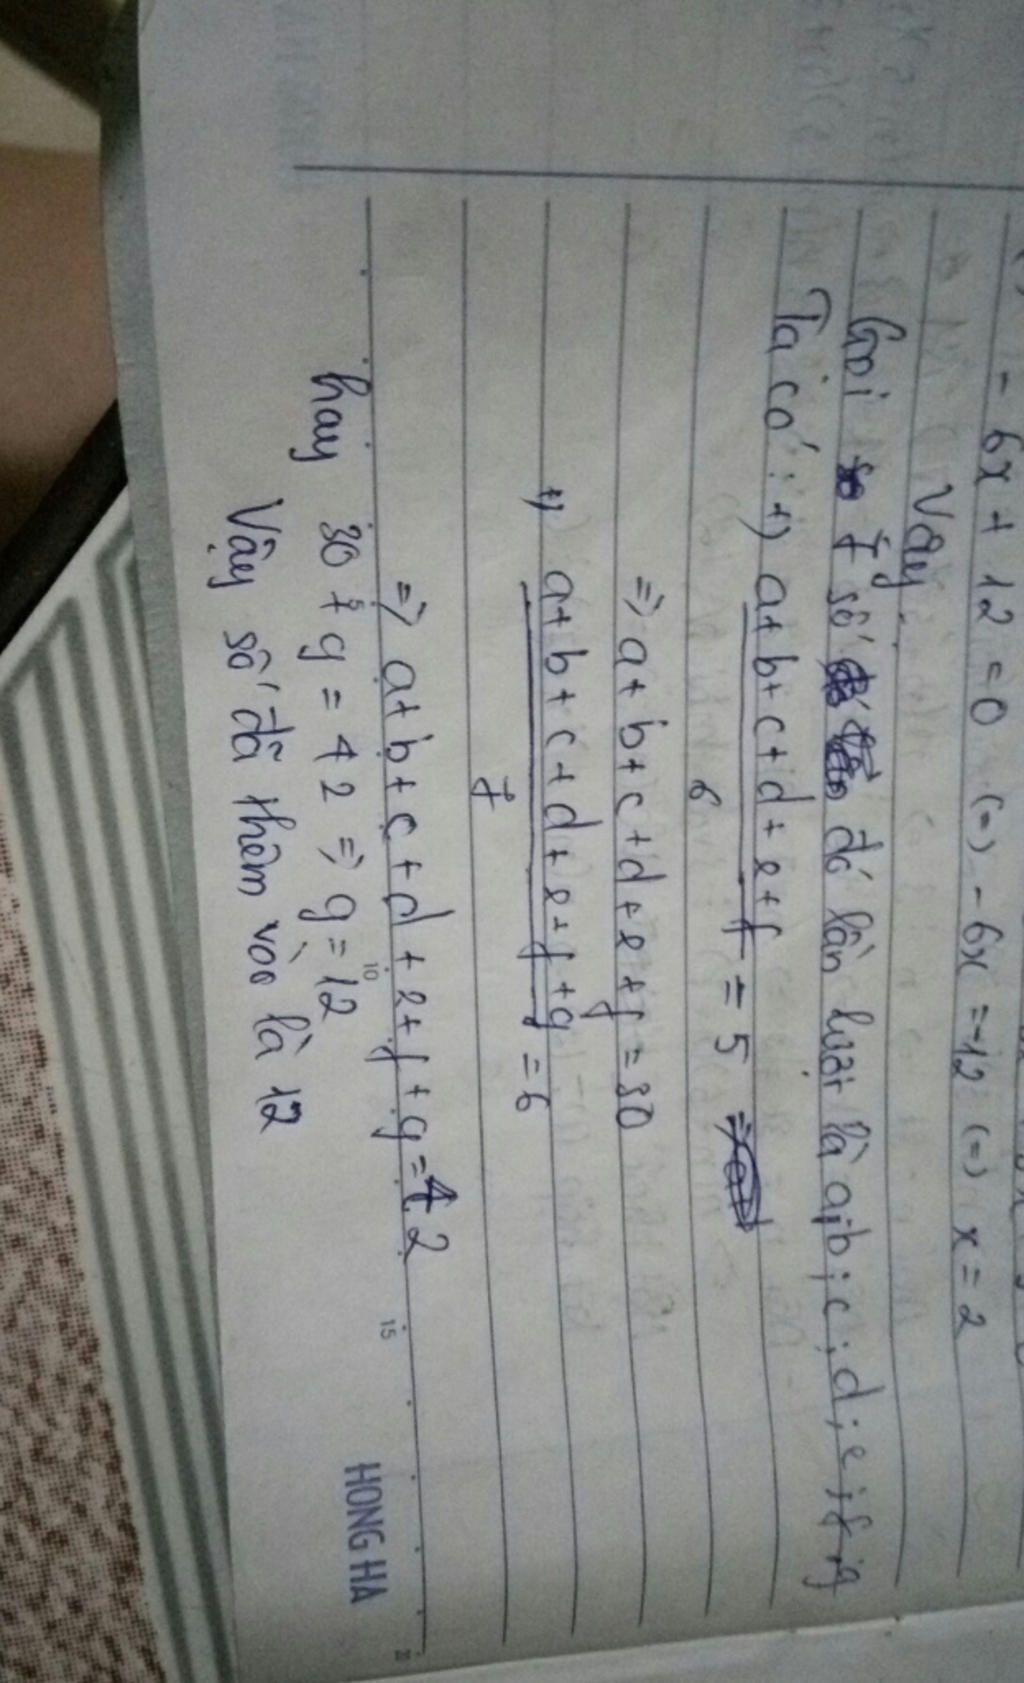 - 6x + 12 = 0 (=) - 6x = -12 (=) x = 2
Vậy
Gọi 7 số đó lần lượt là a;b;c;d;e;f;g
Ta có: +) a+b+c+d+e+f = 5 =>
6
=> a+b+c+d+e+f = 30
+) a+b+c+d+e+f+g = 6
7
=> a+b+c+d+e+f+g = 42
hay 30 + g = 42 => g = 12
Vậy số đã thêm vào là 12
10
15
20
HONG HA